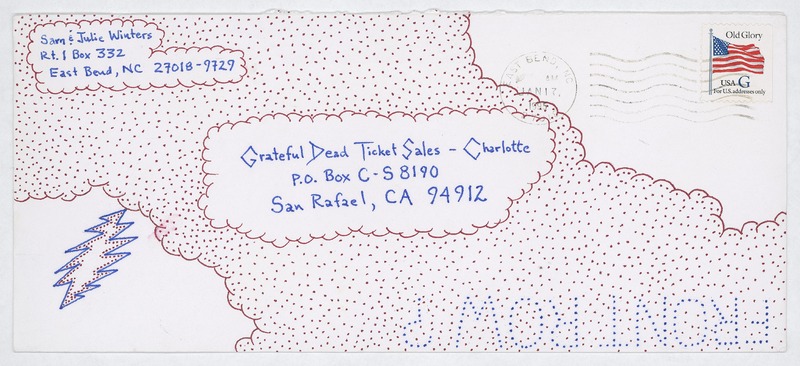 Sam & Julie Winters
Rt. 1 Box 332
East Bend, NC 27018-9729
EAST BEND, NC
AM
JAN 17,
Old Glory
USA G
For U.S. addresses only
Grateful Dead Ticket Sales - Charlotte
P.O. Box C-S 8190
San Rafael, CA 94912
FRONT ROW ?